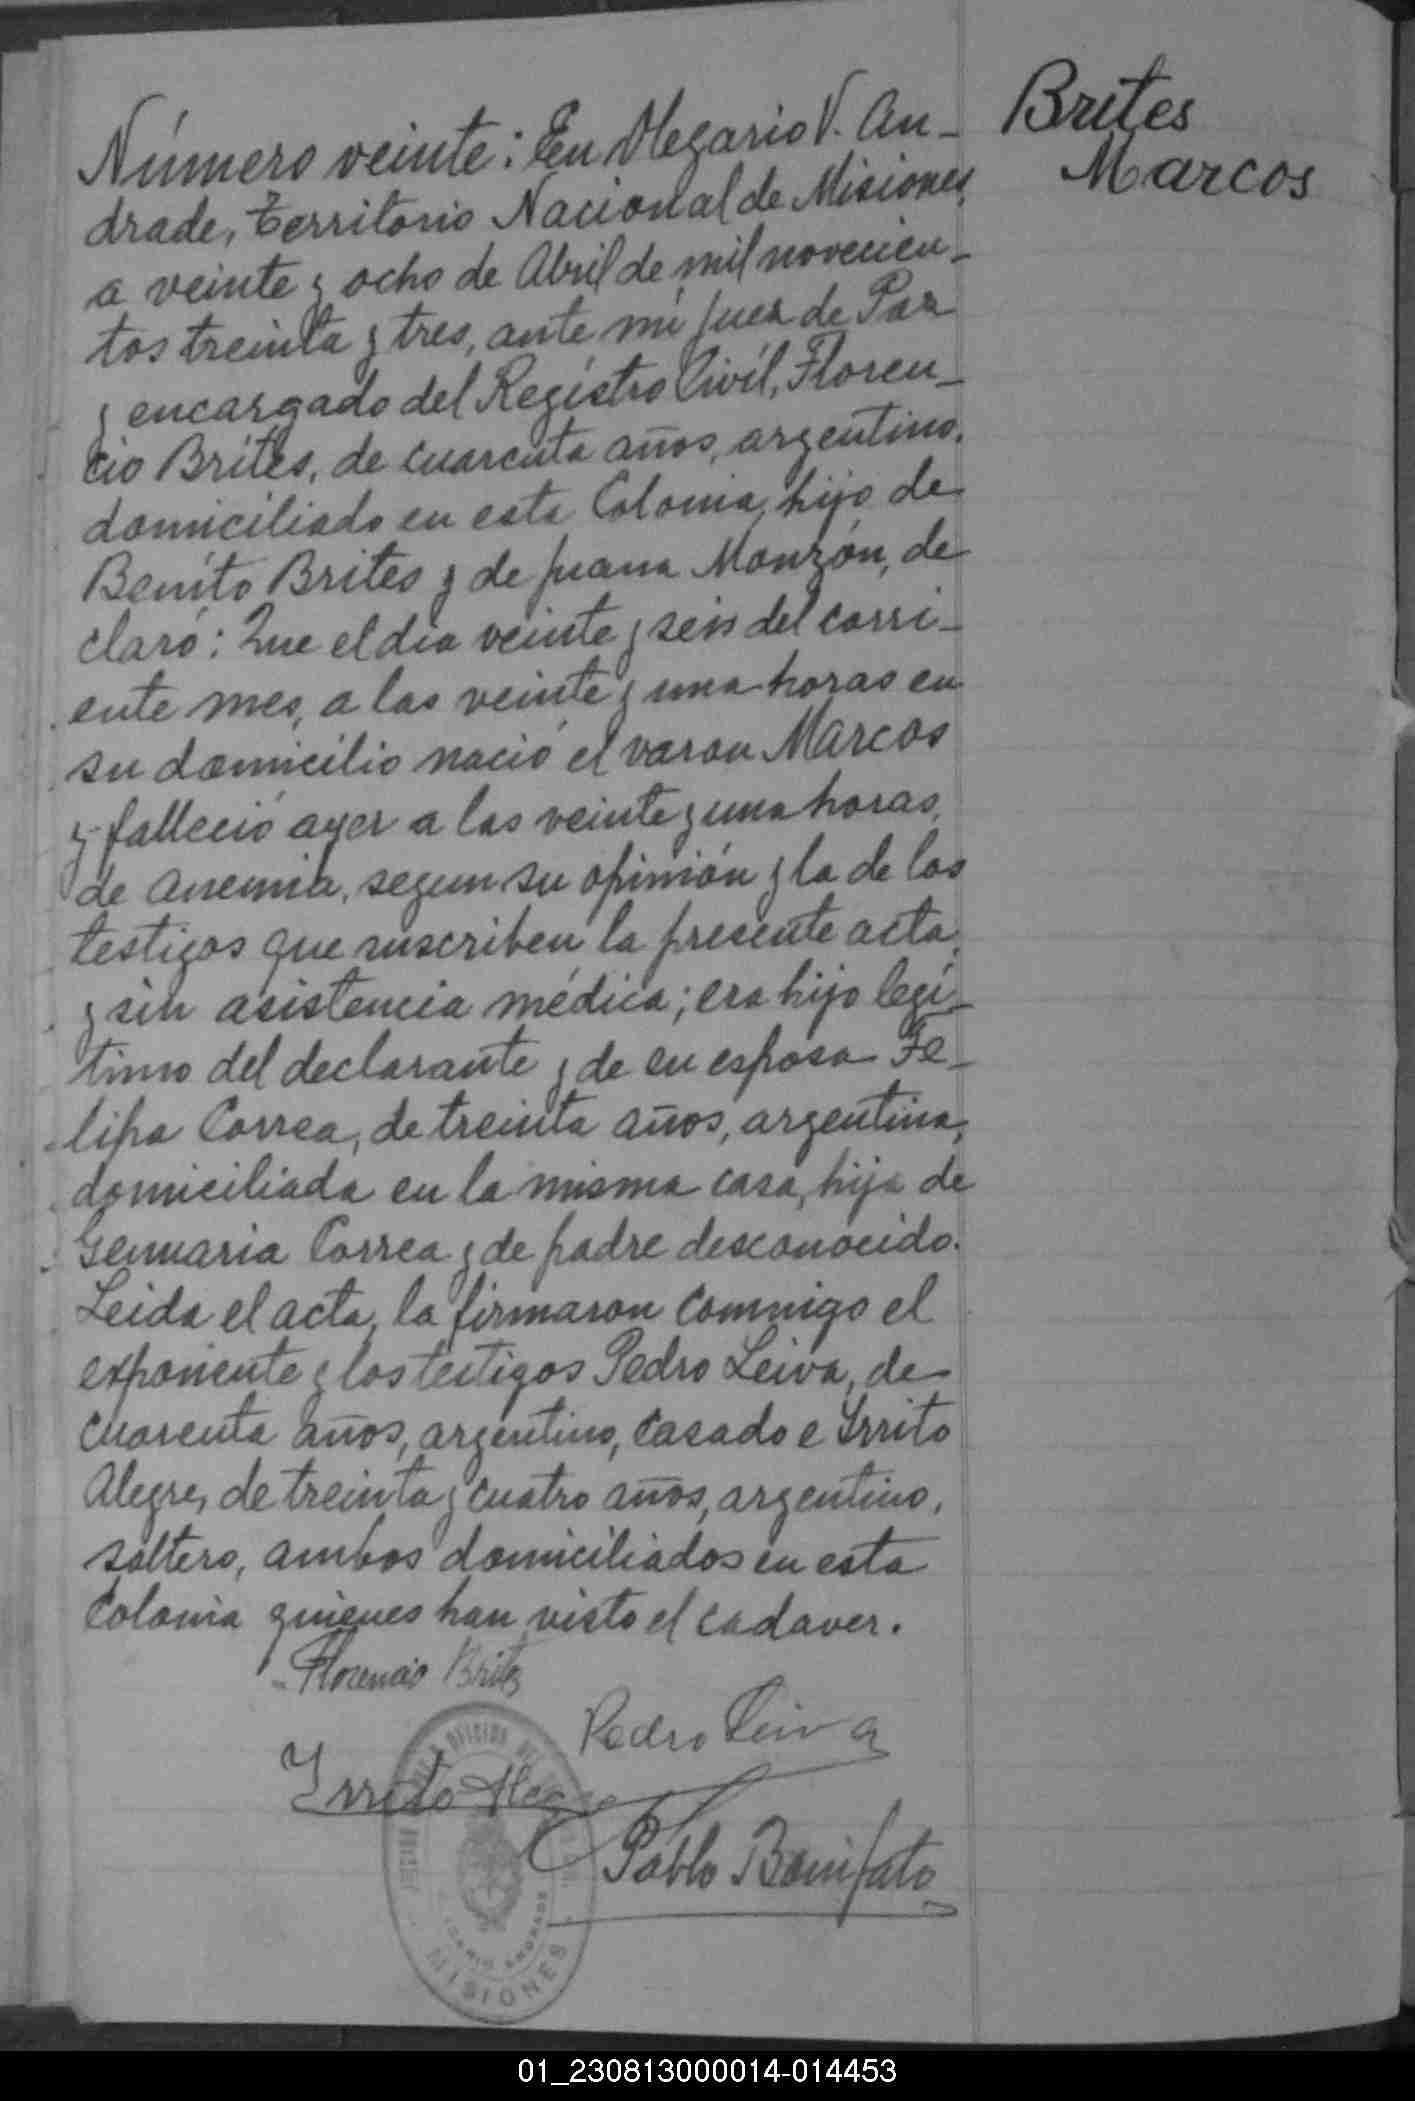 Número veinte: En Olegario V. An-
drade, Territorio Nacional de Misiones,
a veinte y ocho de Abril de mil novecien-
tos treinta y tres, ante mi Juez de Paz
y encargado del Registro Civil, Floren-
cio Brites, de cuarenta años, argentino,
domiciliado en esta Colonia, hijo de
Benito Brites y de Juana Monzón, de
claró: Que el dia veinte y seis del corri-
ente mes, a las veinte y una horas en
su domicilio nació el varon Marcos
y falleció ayer a las veinte y una horas,
de anemia, segun su opinión y la de los
testigos que suscriben la presente acta,
y sin asistencia médica; era hijo legí-
timo del declarante y de su esposa Fe-
lipa Correa, de treinta años, argentina,
domiciliada en la misma casa, hija de
Genuaria Correa y de padre desconocido.
Leida el acta, la firmaron commigo el
exponente y los testigos Pedro Leiva, de
cuarenta años, argentino, casado e Irrito
Alegre, de treinta y cuatro años, argentino,
soltero, ambos domiciliados en esta
Colonia quienes han visto el cadaver.
Florencio Brites
Pedro Leiva
Irrito Alegre
Pablo Bonifato
MISIONES
Brites
Marcos
01_230813000014-014453